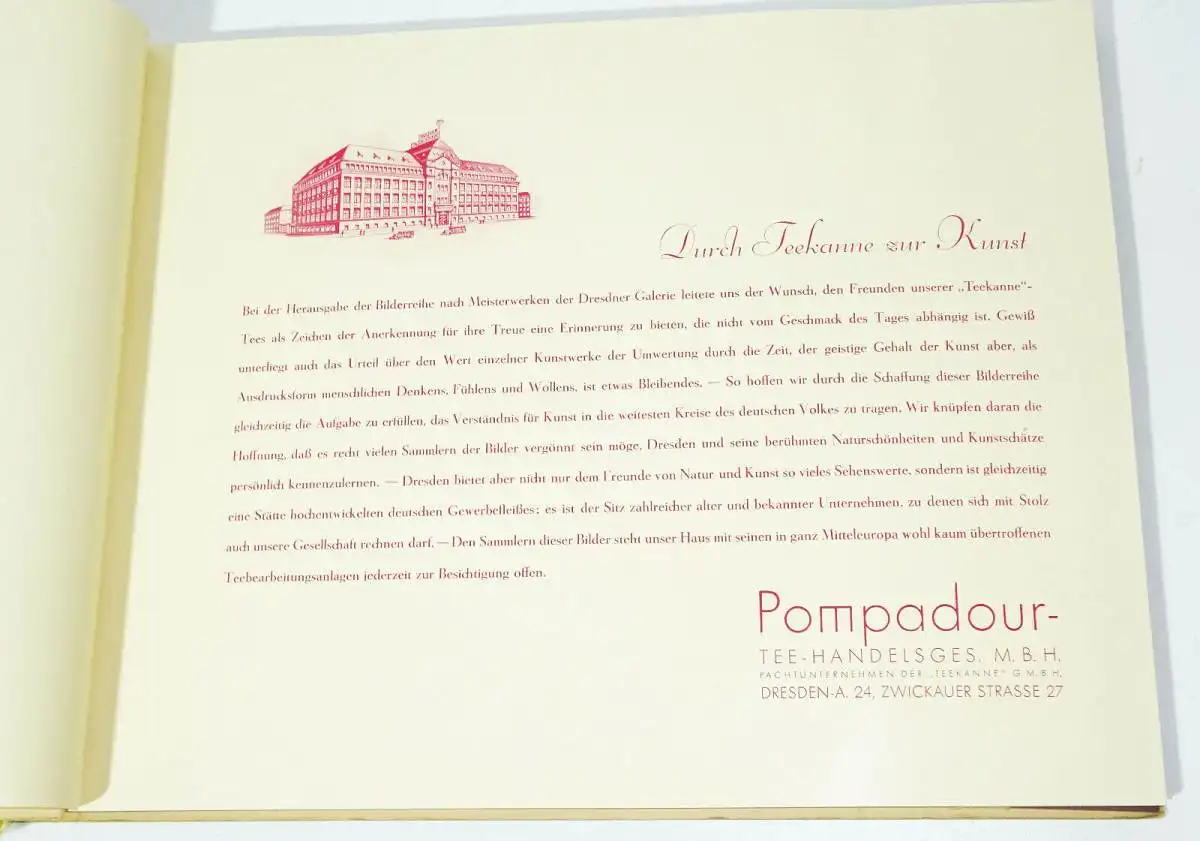 Durch Teekanne zur Kunst
Bei der Herausgabe der Bilderreihe nach Meisterwerken der Dresdner Galerie leitete uns der Wunsch, den Freunden unserer „Teekanne“-
Tees als Zeichen der Anerkennung für ihre Treue eine Erinnerung zu bieten, die nicht vom Geschmack des Tages abhängig ist. Gewiß
unterliegt auch das Urteil über den Wert einzelner Kunstwerke der Umwertung durch die Zeit, der geistige Gehalt der Kunst aber, als
Ausdrucksform menschlichen Denkens, Fühlens und Wollens, ist etwas Bleibendes. — So hoffen wir durch die Schaffung dieser Bilderreihe
gleichzeitig die Aufgabe zu erfüllen, das Verständnis für Kunst in die weitesten Kreise des deutschen Volkes zu tragen. Wir knüpfen daran die
Hoffnung, daß es recht vielen Sammlern der Bilder vergönnt sein möge, Dresden und seine berühmten Naturschönheiten und Kunstschätze
persönlich kennenzulernen. — Dresden bietet aber nicht nur dem Freunde von Natur und Kunst so vieles Sehenswerte, sondern ist gleichzeitig
eine Stätte hochentwickelten deutschen Gewerbefleißes; es ist der Sitz zahlreicher alter und bekannter Unternehmen, zu denen sich mit Stolz
auch unsere Gesellschaft rechnen darf. — Den Sammlern dieser Bilder steht unser Haus mit seinen in ganz Mitteleuropa wohl kaum übertroffenen
Teebearbeitungsanlagen jederzeit zur Besichtigung offen.
Pompadour-
TEE-HANDELSGES. M. B. H.
PACHTUNTERNEHMEN DER „TEEKANNE“ G.M.B.H.
DRESDEN-A. 24, ZWICKAUER STRASSE 27